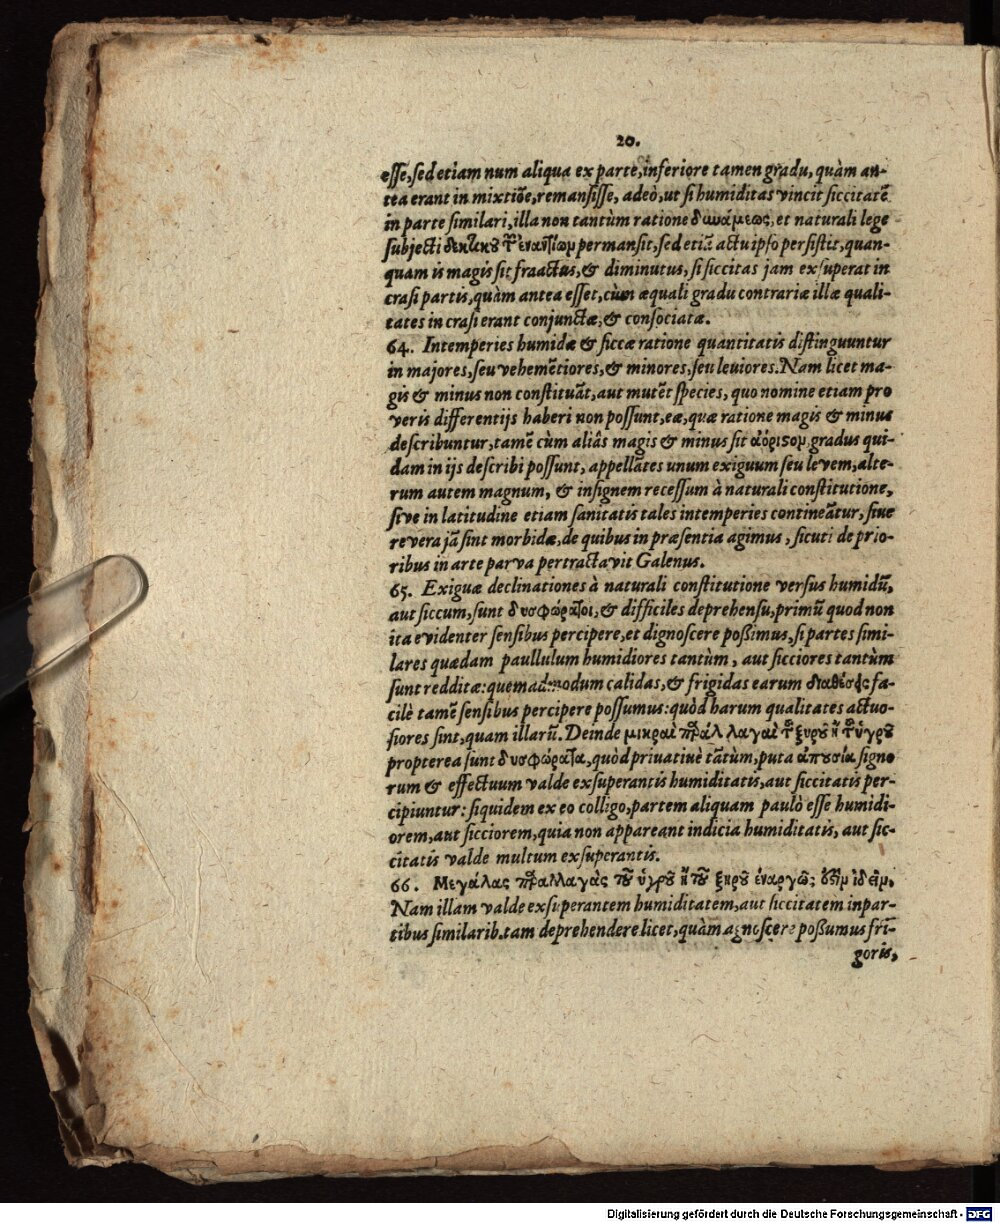 20.
esse, sed etiam num aliqua ex parte, inferiore tamen gradu, quàm an-
tea erant in mixtiōe, remansisse, adeò, ut si humiditas vincit siccitatē
in parte similari, illa non tantùm ratione δυνάμεως, et naturali lege
subjecti δεκτικοῦ τῶν ἐναντίων permansit, sed etiā actu ipso persistit, quan-
quam is magis sit fraactus, & diminutus, si siccitas jam exsuperat in
crasi partis, quàm antea esset, cùm æquali gradu contrariæ illæ quali-
tates in crasi erant conjunctæ, & consociatæ.
64. Intemperies humidæ & siccæ ratione quantitatis distinguuntur
in majores, seu vehemētiores, & minores, seu leviores. Nam licet ma-
gis & minus non constituāt, aut mutēt species, quo nomine etiam pro
veris differentijs haberi non possunt, eæ, quæ ratione magis & minus
describuntur, tamē cùm aliâs magis & minus sit ἀόριστον, gradus qui-
dam in ijs describi possunt, appellātes unum exiguum seu levem, alte-
rum autem magnum, & insignem recessum à naturali constitutione,
sive in latitudine etiam sanitatis tales intemperies contineātur, sive
revera jā sint morbidæ, de quibus in præsentia agimus, sicuti de prio-
ribus in arte parva pertractavit Galenus.
65. Exiguæ declinationes à naturali constitutione versus humidū,
aut siccum, sunt δυσφώρατοι, & difficiles deprehensu, primū quod non
ita evidenter sensibus percipere, et dignoscere poßimus, si partes simi-
lares quædam paullulum humidiores tantùm, aut sicciores tantùm
sunt redditæ: quemadmodum calidas, & frigidas earum διαθέσεις fa-
cilè tamē sensibus percipere possumus: quòd harum qualitates actuo-
siores sint, quam illarū. Deinde μικραὶ παραλλαγαὶ τοῦ ξηροῦ ἢ τοῦ ὑγροῦ
propterea sunt δυσφώρατα, quòd privativè tātùm, puta ἀπουσία signo
rum & effectuum valde exsuperantis humiditatis, aut siccitatis per-
cipiuntur: siquidem ex eo colligo, partem aliquam paulò esse humidi-
orem, aut sicciorem, quia non appareant indicia humiditatis, aut sic-
citatis valde multum exsuperantis.
66. Μεγάλας παραλλαγὰς τοῦ ὑγροῦ ἢ τοῦ ξηροῦ ἐναργῶς ἐστὶν ἰδεῖν.
Nam illam valde exsuperantem humiditatem, aut siccitatem in par-
tibus similarib. tam deprehendere licet, quàm agnoscere poßumus fri-
goris,
Digitalisierung gefördert durch die Deutsche Forschungsgemeinschaft - DFG